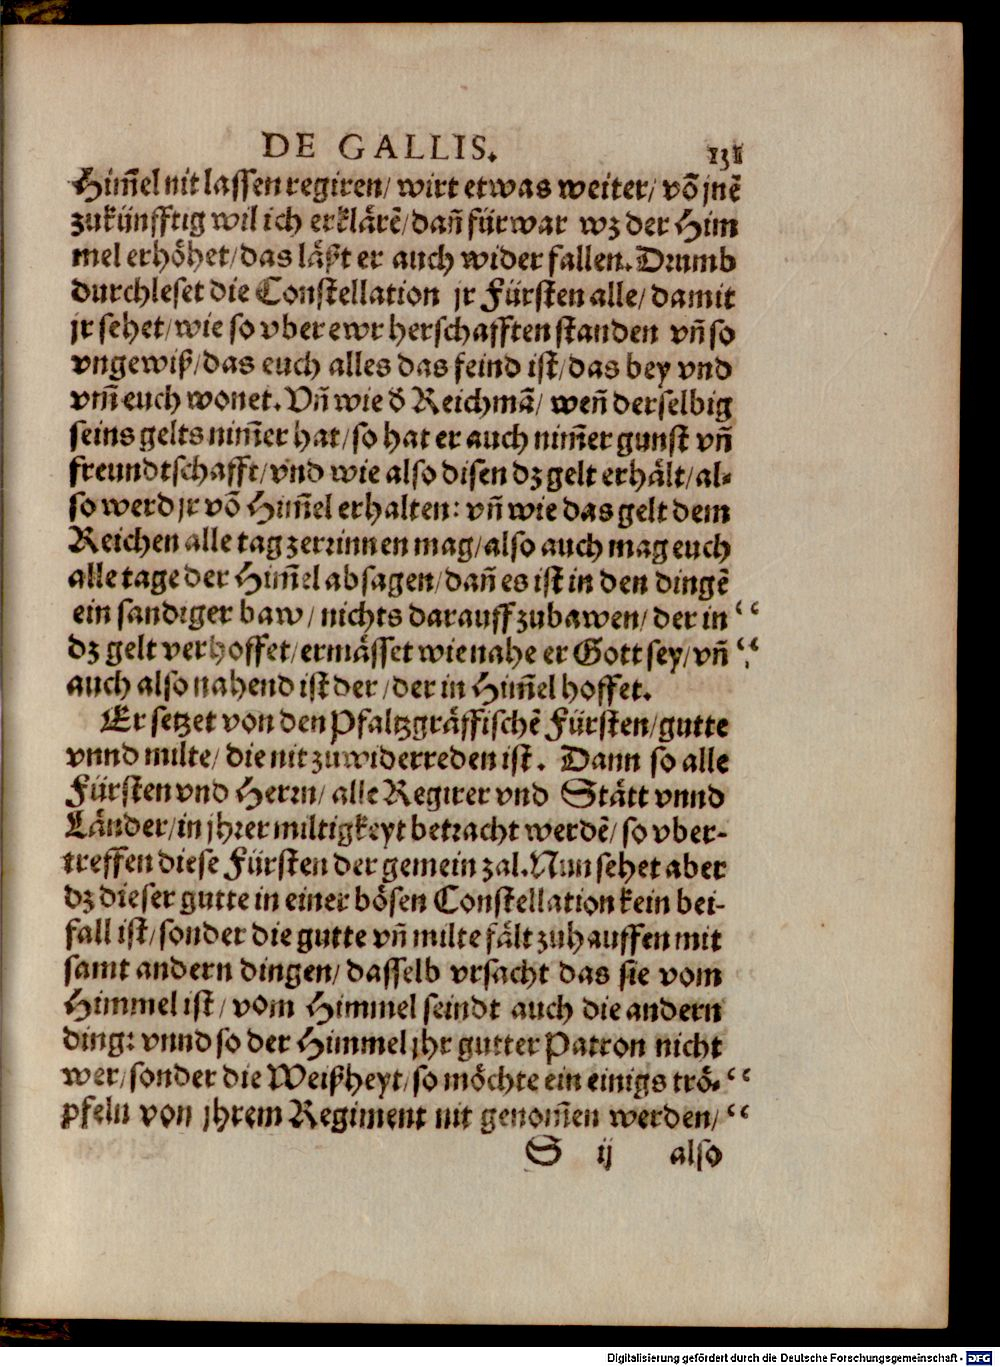 DE GALLIS. 131
Him̃el nit lassen regiren/ wirt etwas weiter/ võ jnẽ
zukünfftig wil ich erklärẽ/ dañ fürwar wz der Him
mel erhöhet/ das läßt er auch wider fallen. Drumb
durchleset die Constellation jr Fürsten alle/ damit
jr sehet/ wie so vber ewr herschafften standen vñ so
vngewiß/ das euch alles das feind ist/ das bey vnd
vm̃ euch wonet. Vñ wie d̕ Reichmã/ weñ derselbig
seins gelts nim̃er hat/ so hat er auch nim̃er gunst vñ
freundtschafft/ vnd wie also disen dz gelt erhält/ al-
so werd jr võ Him̃el erhalten: vñ wie das gelt dem
Reichen alle tag zerrinnen mag/ also auch mag euch
alle tage der Him̃el absagen/ dañ es ist in den dingẽ
ein sandiger baw/ nichts darauff zubawen/ der in “
dz gelt verhoffet/ ermässet wie nahe er Gott sey/ vñ “
auch also nahend ist der/ der in Him̃el hoffet.
Er setzet von den Pfaltzgräffischẽ Fürsten/ gutte
vnnd milte/ die nit zuwiderreden ist. Dann so alle
Fürsten vnd Herrn/ alle Regirer vnd Stätt vnnd
Länder/ in jhrer miltigkeyt betracht werdẽ/ so vber-
treffen diese Fürsten der gemein zal. Nun sehet aber
dz dieser gutte in einer bösen Constellation kein bei-
fall ist/ sonder die gutte vñ milte fält zuhauffen mit
samt andern dingen/ dasselb vrsacht das sie vom
Himmel ist/ vom Himmel seindt auch die andern
ding: vnnd so der Himmel jhr gutter Patron nicht
wer/ sonder die Weißheyt/ so möchte ein einigs trö- “
pfeln von jhrem Regiment nit genom̃en werden/ “
S ij also
Digitalisierung gefördert durch die Deutsche Forschungsgemeinschaft - DFG